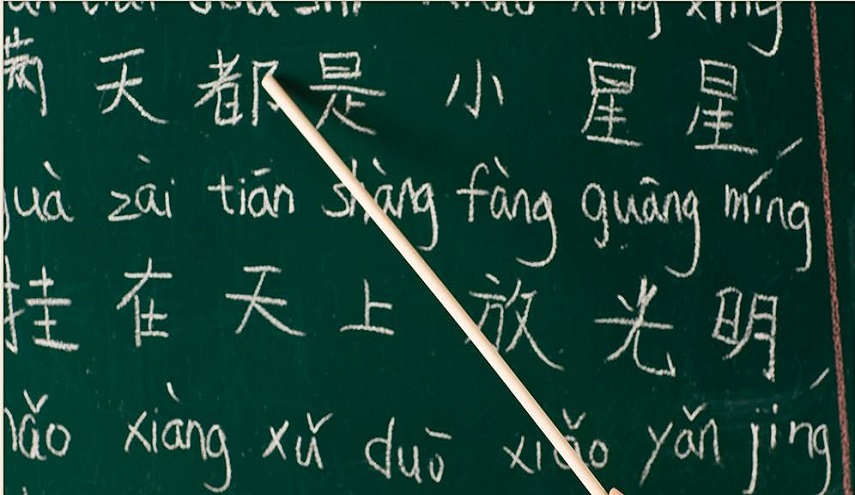 xīng xīng
满 天 都 是 小 星 星
guà zài tiān shàng fàng guāng míng
挂 在 天 上 放 光 明
hǎo xiàng xǔ duō xiǎo yǎn jīng